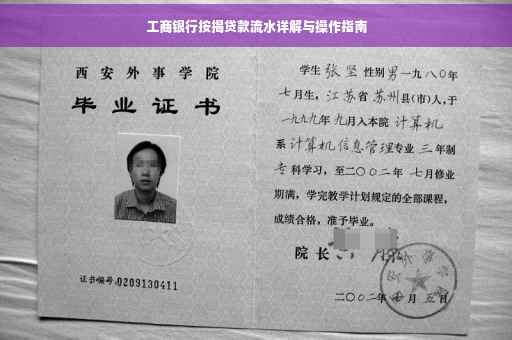 工商银行按揭贷款流水详解与操作指南
西安外事学院
毕业证书
证书编号:0209130411
学生 张坚 性别男一九八〇年
七月生，江苏省 苏州县(市)人,于
一九九九年 九月入本院 计算机
系 计算机信息管理专业 三 年制
专 科学习，至二〇〇二年 七月修业
期满，学完教学计划规定的全部课程，
成绩合格，准予毕业。
院 长
二〇〇二年 月 五 日